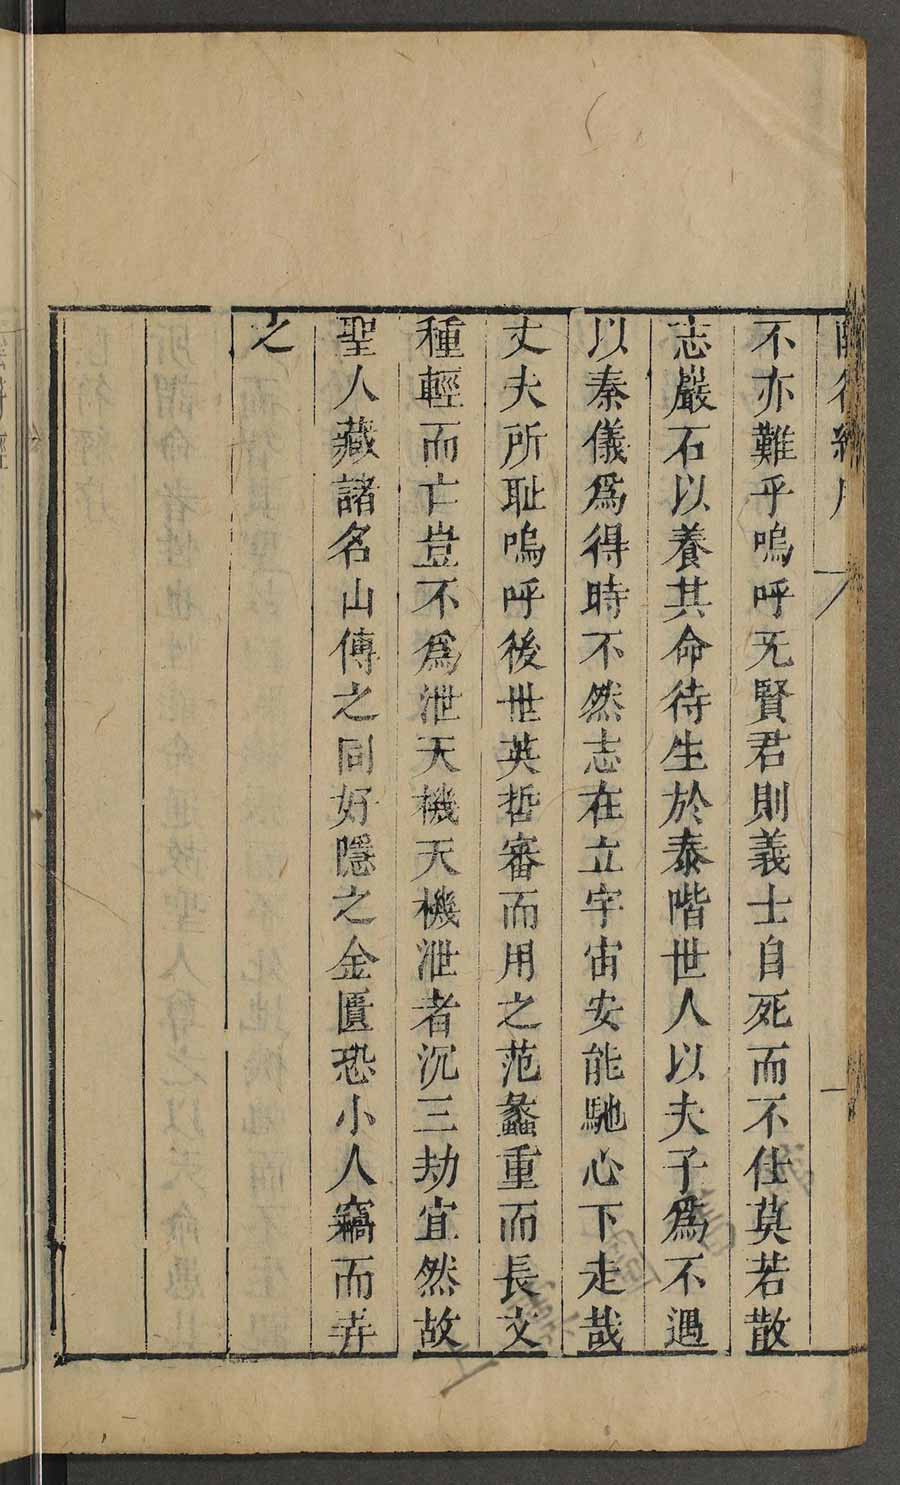 不亦難乎嗚呼无賢君則義士自死而不仕莫若散
志巖石以養其命待生於泰階世人以夫子爲不遇
以秦儀爲得時不然志在立宇宙安能馳心下走哉
丈夫所耻嗚呼後世英哲審而用之范蠡重而長文
種輕而亡豈不爲泄天機天機泄者沉三劫宜然故
聖人藏諸名山傳之同好隱之金匱恐小人竊而弄
之